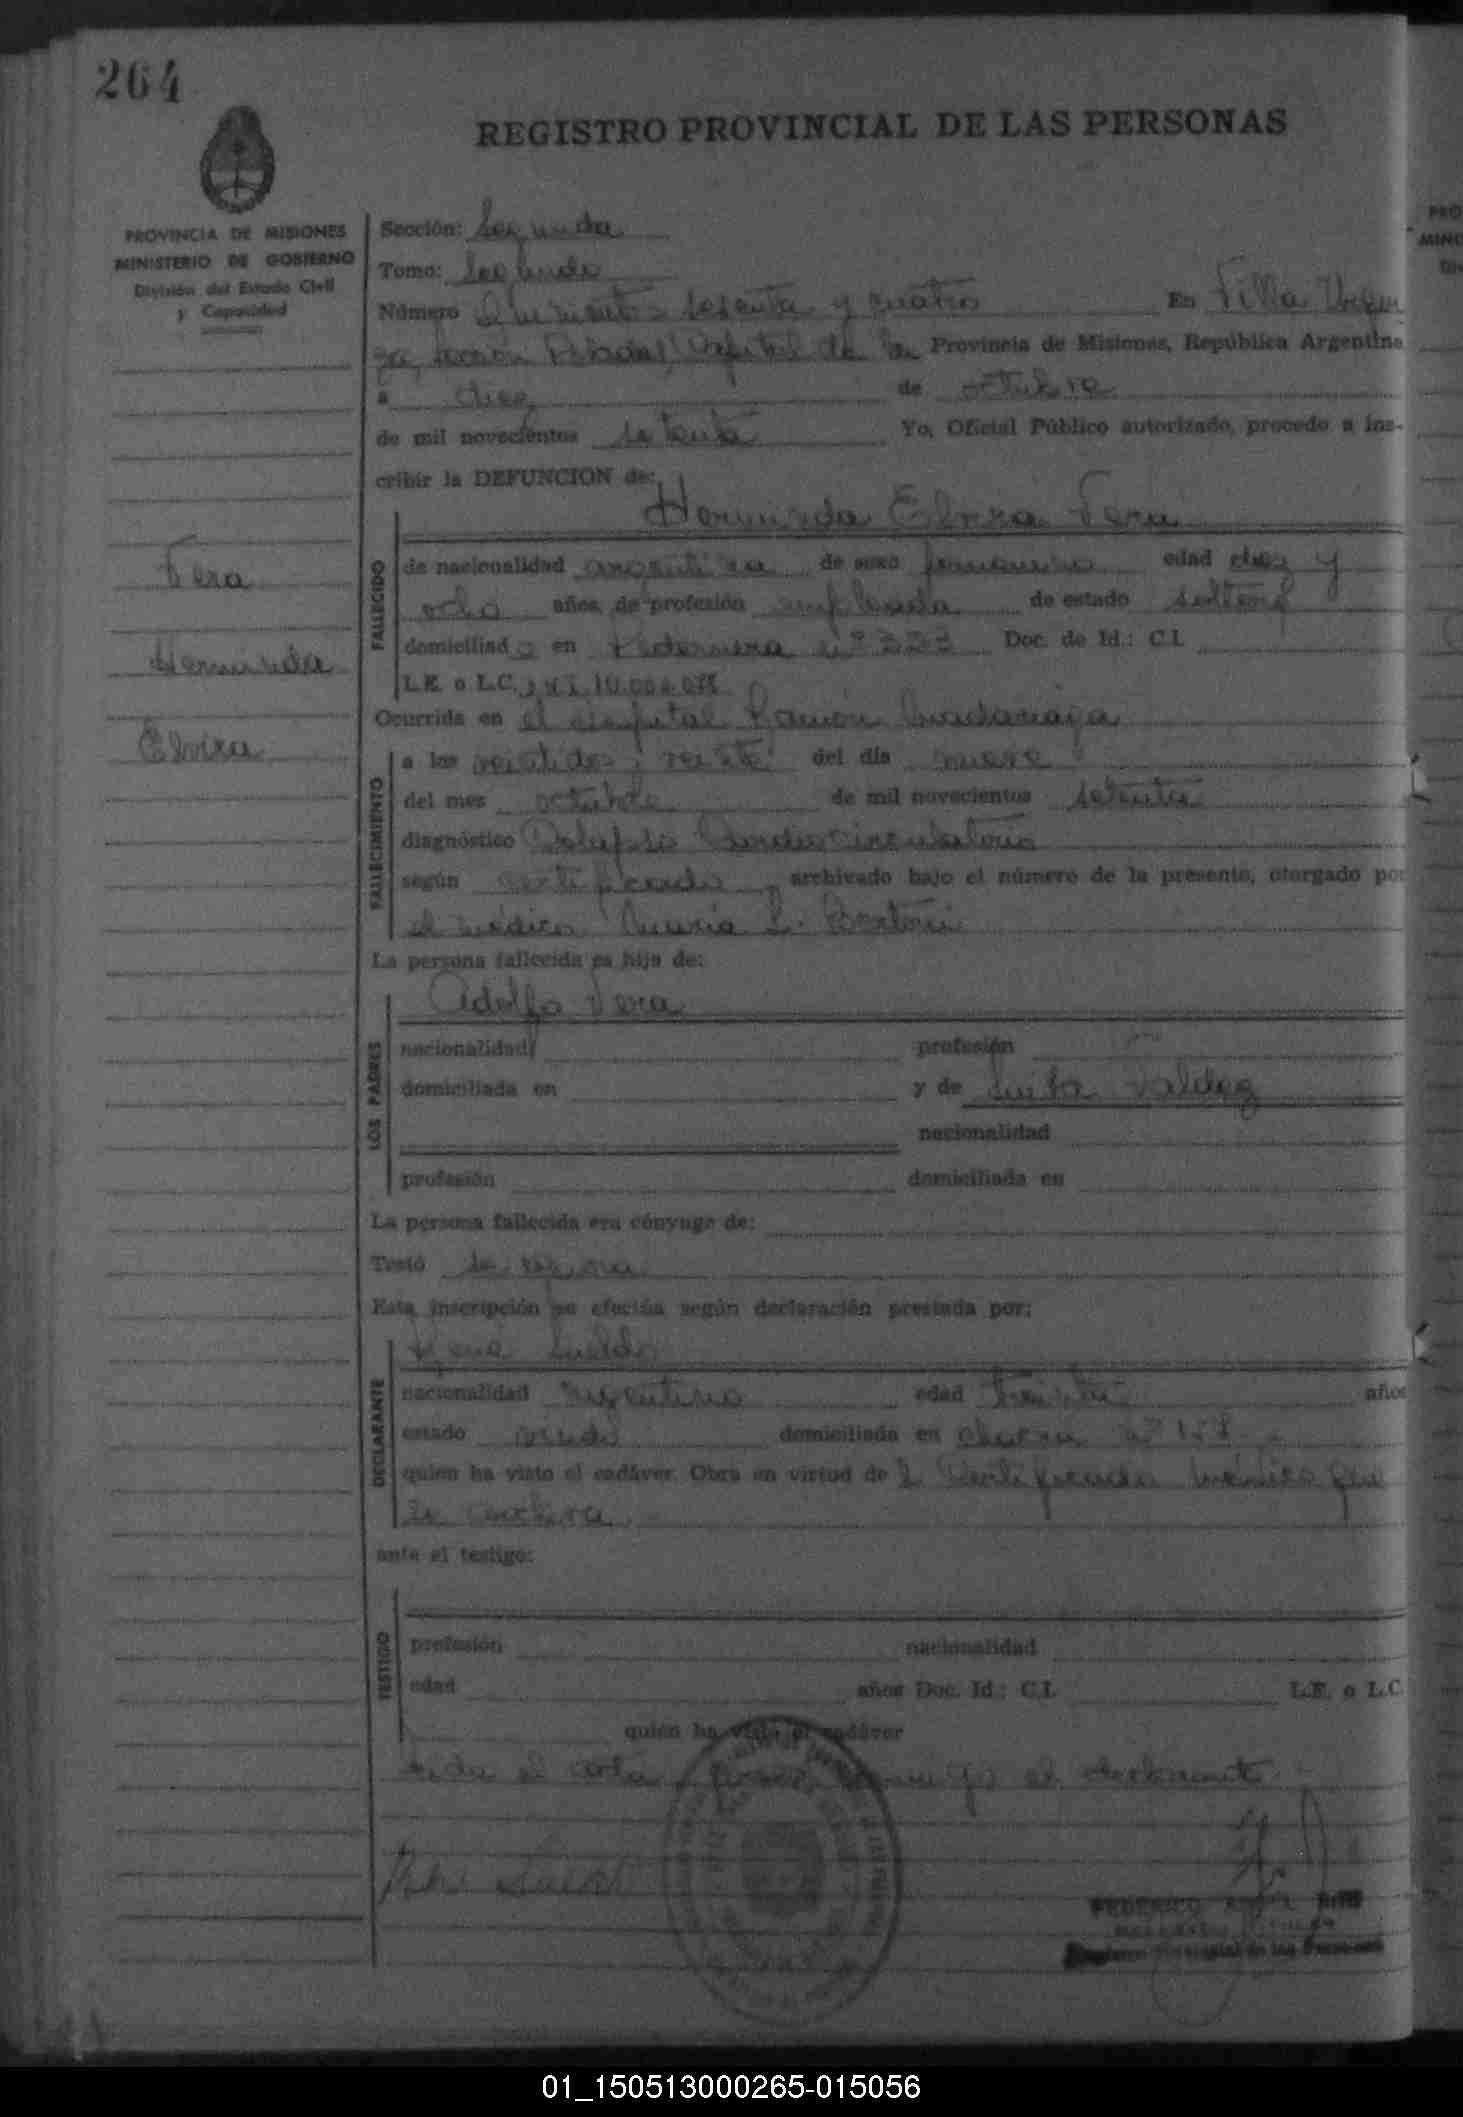 264
REGISTRO PROVINCIAL DE LAS PERSONAS
PROVINCIA DE MISIONES
MINISTERIO DE GOBIERNO
División del Estado Civil
y Capacidad
Sección: Segunda
Tomo: Segundo
Número Quinientos sesenta y cuatro En Villa
Capital de la Provincia de Misiones, República Argentina
a diez de octubre
de mil novecientos setenta Yo, Oficial Público autorizado, procedo a ins-
cribir la DEFUNCION de:
Herminda Elvira Vera
Vera
Herminda
Elvira
FALLECIDO
de nacionalidad argentina de sexo femenino edad diez y
ocho años, de profesión empleada de estado soltera
domiciliad a en Pedernera nº 323 Doc. de Id.: C.I.
L.E. o L.C.
Ocurrida en el hospital Ramón Madariaga
FALLECIMIENTO
a las veintidos y veinte del día nueve
del mes octubre de mil novecientos setenta
diagnóstico Colapso Cardiocirculatorio
según certificado archivado bajo el número de la presente, otorgado por
el médico María L.
La persona fallecida es hija de:
LOS PADRES
Adolfo Vera
nacionalidad profesión
domiciliada en y de Luisa Valdez
nacionalidad
profesión domiciliada en
La persona fallecida era cónyuge de:
Testó se ignora
Esta inscripción se efectúa según declaración prestada por:
DECLARANTE
nacionalidad argentino edad treinta años
estado domiciliada en chacra nº
quien ha visto el cadáver. Obra en virtud de Certificado médico que
se archiva
ante el testigo:
TESTIGO
profesión nacionalidad
edad años Doc. Id.: C.I. L.E. o L.C.
quien ha visto el cadáver
el acta conmigo el declarante
FEDERICO
Registro Provincial de las Personas
01_150513000265-015056